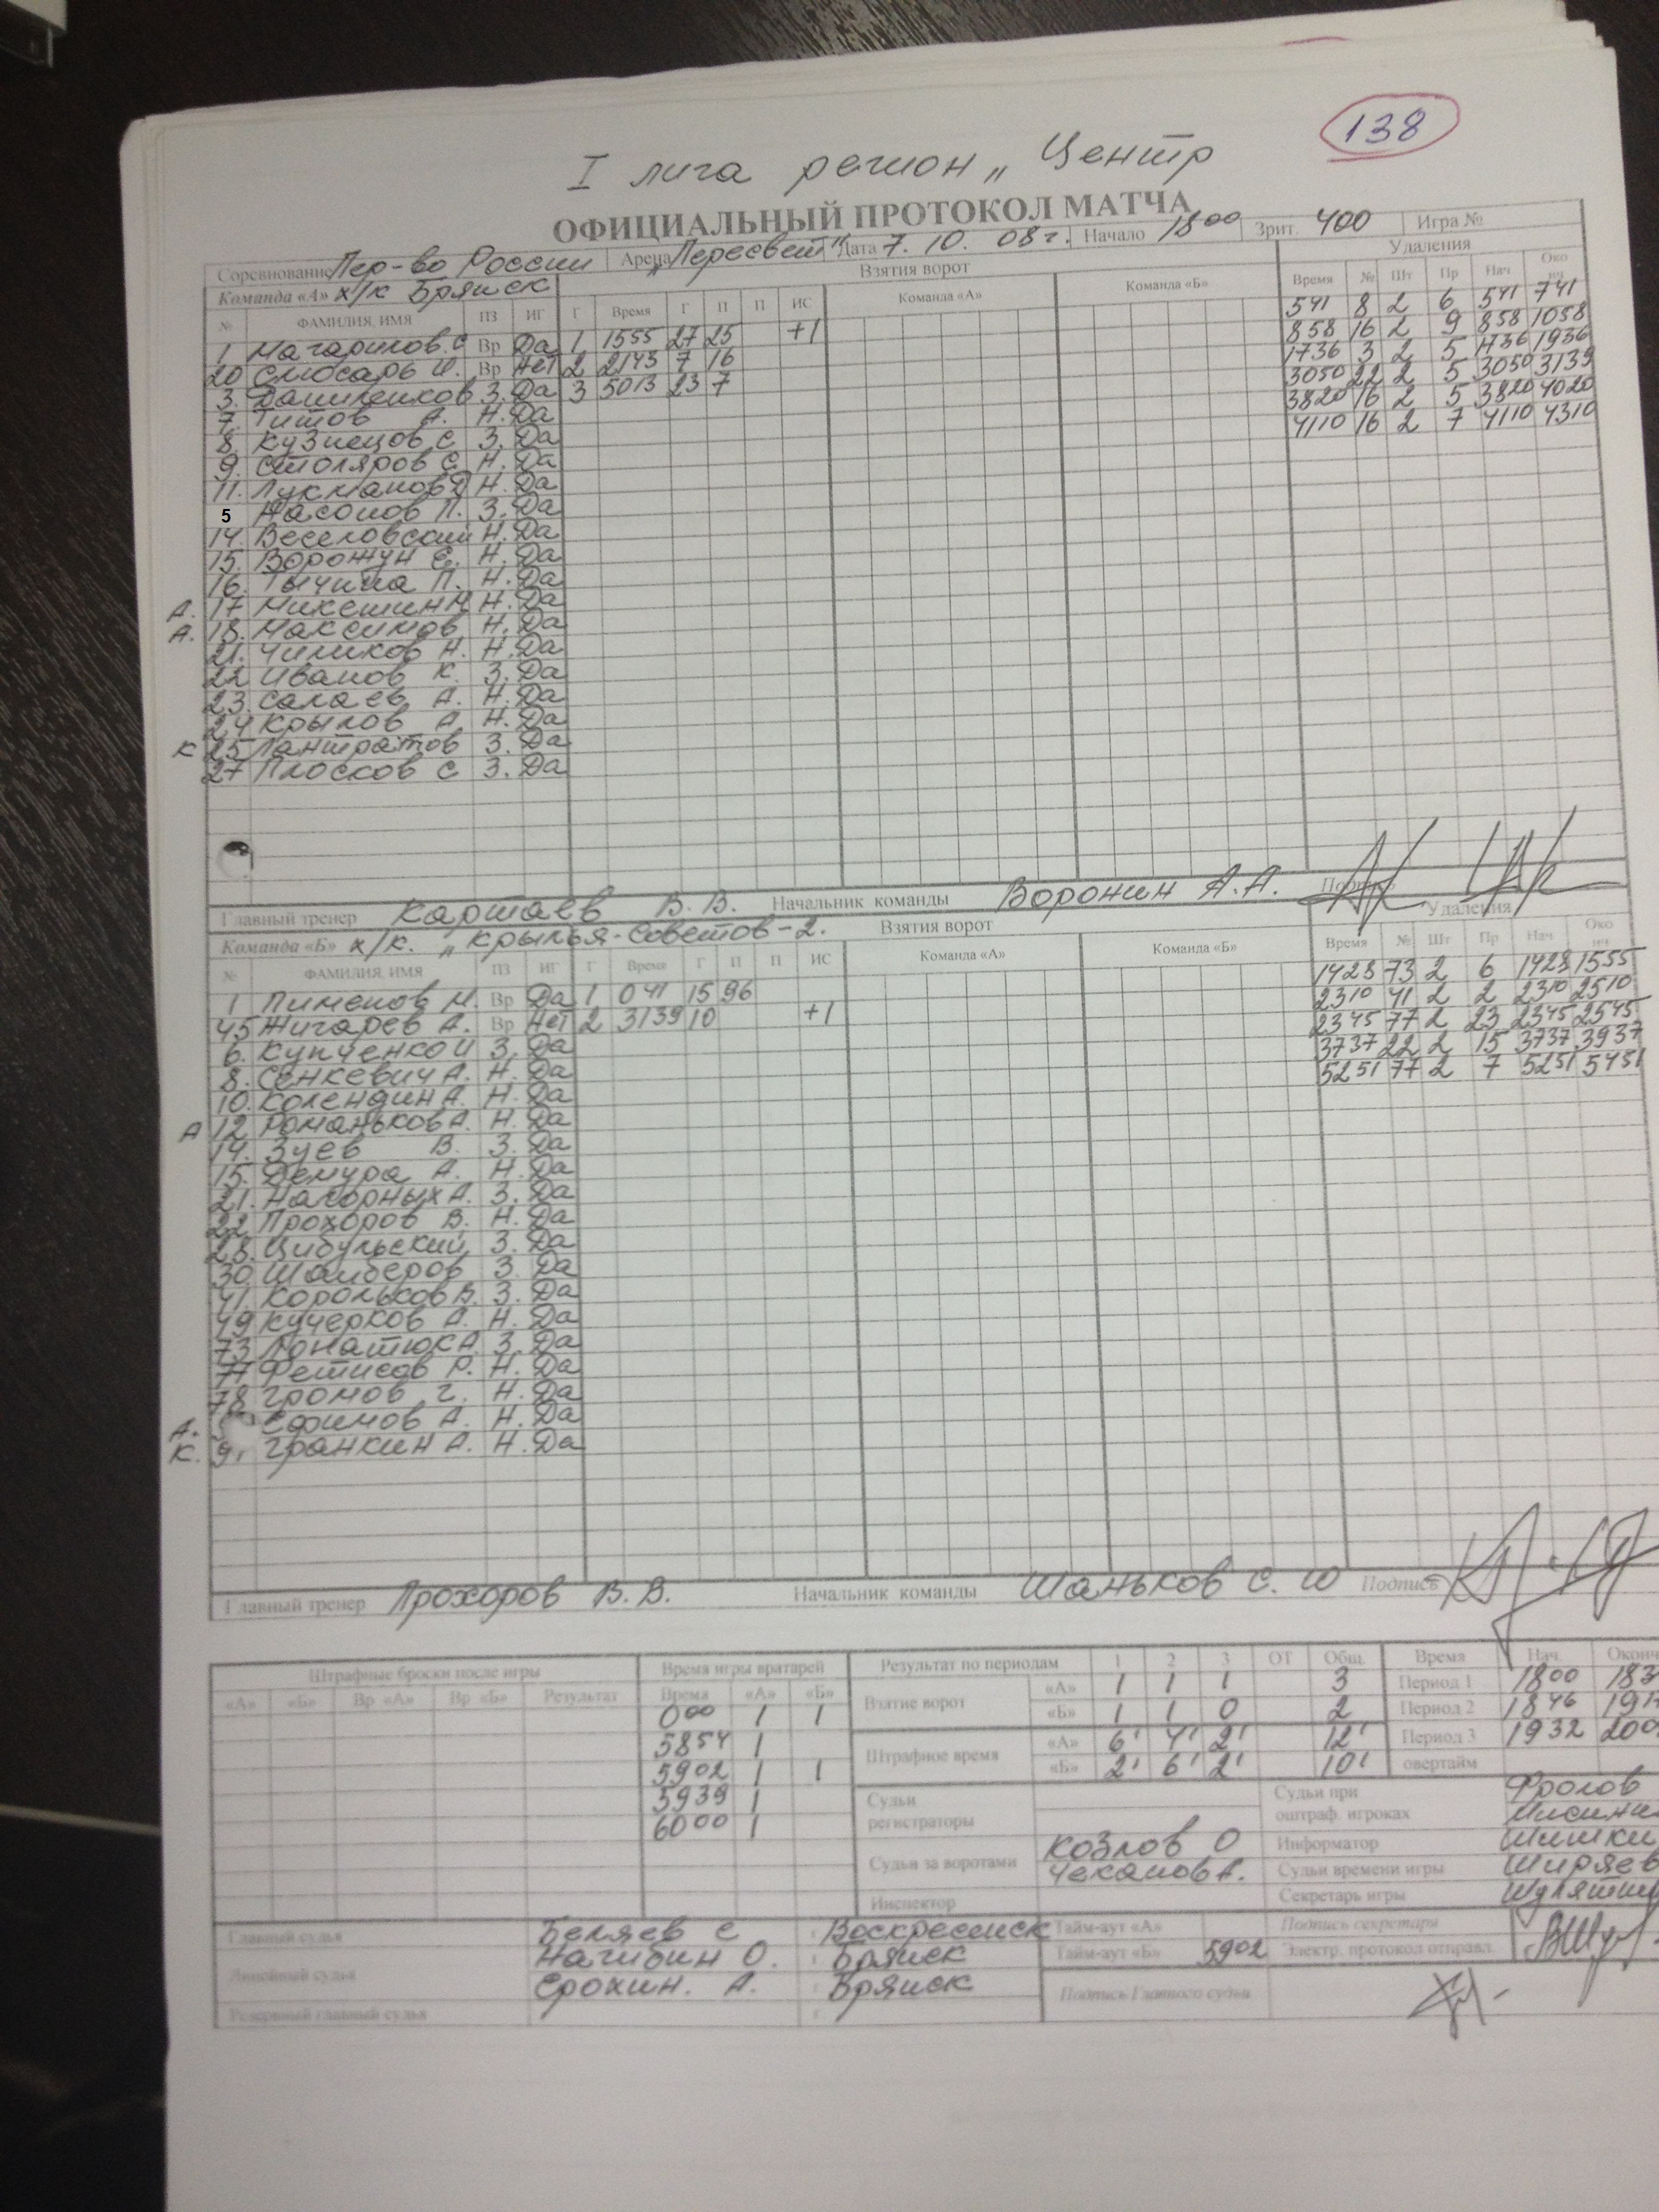 138
I лига регион „Центр
ОФИЦИАЛЬНЫЙ ПРОТОКОЛ МАТЧА
Соревнование Пер-во России Арена „Пересвет" Дата 7.10.08г. Начало 18 00 Зрит. 400 Игра №
Команда «А» х/к Брянск Взятия ворот Удаления
№ ФАМИЛИЯ, ИМЯ ПЗ ИГ Г Время Г П П ИС Команда «А» Команда «Б» Время № Шт Пр Нач Око
1 Магарилов С Вр Да 1 1555 27 25 +1 541 8 2 6 541 741
20 Слюсарь И. Вр Нет 2 2143 7 16 858 16 2 9 858 1058
3. Даниленков З. Да 3 5013 23 7 1736 3 2 5 1736 1936
7. Титов А. Н. Да 3050 22 2 5 3050 3139
8. Кузнецов С З. Да 3820 16 2 5 3820 4020
9. Столяров С. Н. Да 4110 16 2 7 4110 4310
11. Лукманов Н. Да
5 Насонов П. З. Да
14. Веселовский Н. Да
15. Ворожун Е. Н. Да
16. Тычина П. Н. Да
А. 17 Микешин М Н. Да
А. 18. Максимов Н. Да
21. Чиликов Н. Н. Да
22 Иванов К. З. Да
23. Салаев А. Н. Да
24 Крылов А. Н. Да
К 25 Лантратов З. Да
27 Плосков С З. Да
Главный тренер Картаев В.В. Начальник команды Воронин А.А. Подпись
Команда «Б» х/к. „Крылья-Советов-2. Взятия ворот Удаления
№ ФАМИЛИЯ, ИМЯ ПЗ ИГ Г Время Г П П ИС Команда «А» Команда «Б» Время № Шт Пр Нач Око
1 Пименов М. Вр Да 1 041 15 96 1428 73 2 6 1428 1555
45 Жигарев А. Вр Нет 2 3139 10 +1 2310 41 2 2 2310 2510
6. Купченко И З. Да 2345 77 2 23 2345 2545
8. Сенкевич А. Н. Да 3737 22 2 15 3737 3937
10. Колендин А. Н. Да 5251 77 2 7 5251 5451
А 12 Романьков А. Н. Да
14. Зуев В. З. Да
15. Демура А. Н. Да
21. Нагорных А. З. Да
22. Прохоров В. Н. Да
28. Цибульский З. Да
30. Шайберов З. Да
41. Корольков В. З. Да
49 Кучерков А. Н. Да
73 Лонатюк А. З. Да
77 Фетисов Р. Н. Да
78 Громов Г. Н. Да
А. Ефимов А. Н. Да
К. 9. Гранкин А. Н. Да
Главный тренер Прохоров В.В. Начальник команды Шаньков С.Ю Подпись
Штрафные броски после игры Время игры вратарей Результат по периодам 1 2 3 ОТ Общ. Время Нач. Оконч
«А» «Б» Вр «А» Вр «Б» Результат Время «А» «Б» Взятие ворот «А» 1 1 1 3 Период 1 1800
000 1 1 «Б» 1 1 0 2 Период 2 1846
5854 1 Штрафное время «А» 6' 4' 2' 12' Период 3 1932
5902 1 1 «Б» 2' 6' 2' 10' овертайм
5939 1 Судьи регистраторы Судьи при оштраф. игроках Фролов
6000 1
Судьи за воротами Козлов О Информатор Шишки
Чеканов А. Судьи времени игры Ширяев
Инспектор Секретарь игры
Главный судья Беляев С Воскресенск Тайм-аут «А» Подпись секретаря
Линейный судья Нагибин О. Брянск Тайм-аут «Б» 5902 Электр. протокол отправл.
Ерохин. А. Брянск Подпись Главного судьи
Резервный главный судья